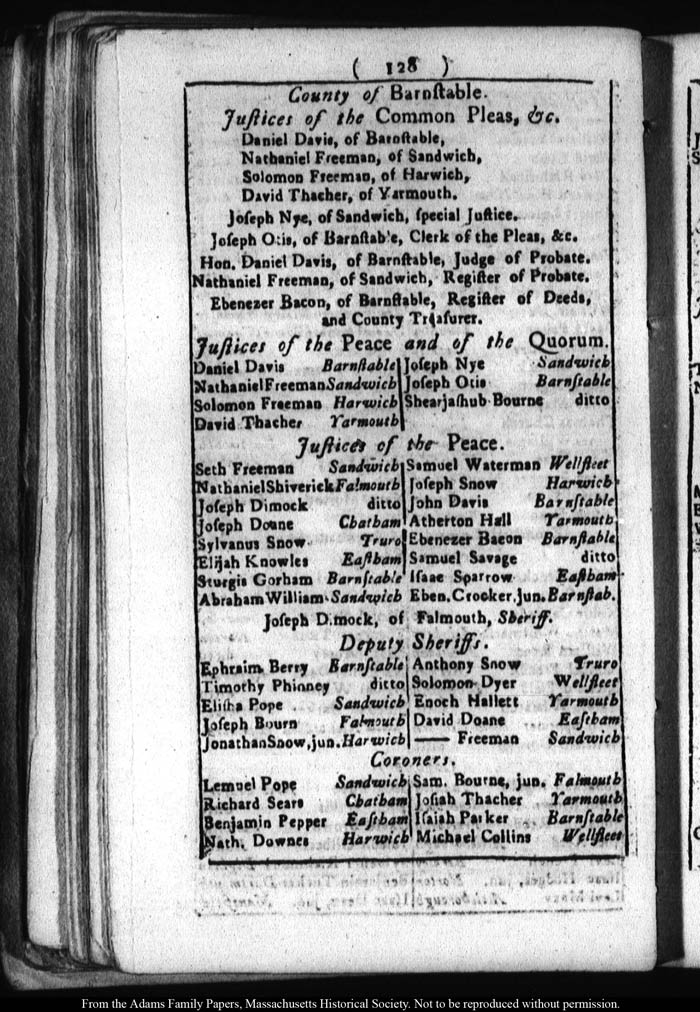 ( 128 )
County of Barnſtable.
Juſtices of the Common Pleas, &c.
Daniel Davis, of Barnſtable,
Nathaniel Freeman, of Sandwich,
Solomon Freeman, of Harwich,
David Thacher, of Yarmouth.
Joſeph Nye, of Sandwich, ſpecial Juſtice.
Joſeph Otis, of Barnſtable, Clerk of the Pleas, &c.
Hon. Daniel Davis, of Barnſtable, Judge of Probate.
Nathaniel Freeman, of Sandwich, Regiſter of Probate.
Ebenezer Bacon, of Barnſtable, Regiſter of Deeds,
and County Treaſurer.
Juſtices of the Peace and of the Quorum.
Daniel Davis Barnſtable Joſeph Nye Sandwich
Nathaniel Freeman Sandwich Joſeph Otis Barnſtable
Solomon Freeman Harwich Shearjaſhub Bourne ditto
David Thacher Yarmouth
Juſtices of the Peace.
Seth Freeman Sandwich Samuel Waterman Wellfleet
Nathaniel Shiverick Falmouth Joſeph Snow Harwich
Joſeph Dimock ditto John Davis Barnſtable
Joſeph Doane Chatham Atherton Hall Yarmouth
Sylvanus Snow Truro Ebenezer Bacon Barnſtable
Elijah Knowles Eaſtham Samuel Savage ditto
Sturgis Gorham Barnſtable Iſaac Sparrow Eaſtham
Abraham William Sandwich Eben. Crocker, jun. Barnſtab.
Joſeph Dimock, of Falmouth, Sheriff.
Deputy Sheriffs.
Ephraim Berry Barnſtable Anthony Snow Truro
Timothy Phinney ditto Solomon Dyer Wellfleet
Eliſha Pope Sandwich Enoch Hallett Yarmouth
Joſeph Bourn Falmouth David Doane Eaſtham
Jonathan Snow, jun. Harwich —— Freeman Sandwich
Coroners.
Lemuel Pope Sandwich Sam. Bourne, jun. Falmouth
Richard Sears Chatham Joſiah Thacher Yarmouth
Benjamin Pepper Eaſtham Iſaiah Parker Barnſtable
Nath. Downes Harwich Michael Collins Wellfleet
From the Adams Family Papers, Massachusetts Historical Society. Not to be reproduced without permission.